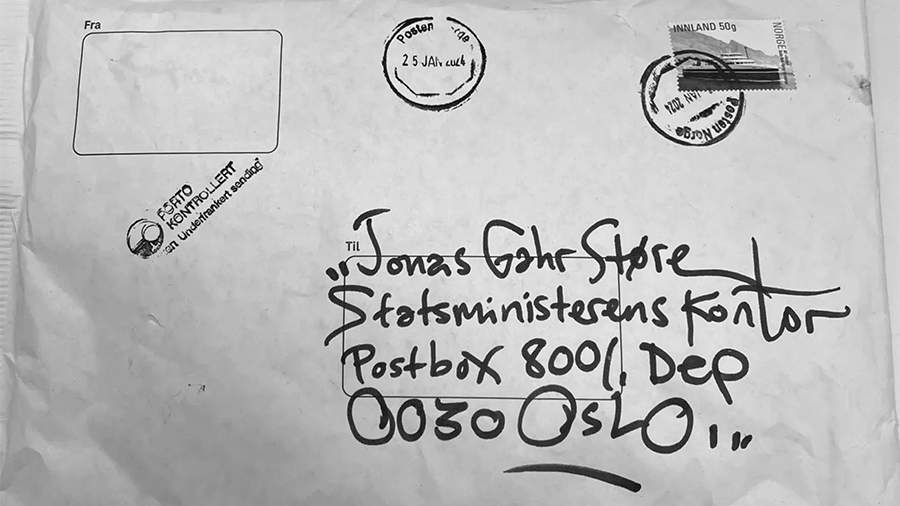 Fra
Posten
25 JAN 2024
INNLAND 50g
NORGE
JAN 2024
Posten Norge
PORTO
KONTROLLERT
Underfrankert sending"
Til
„Jonas Gahr Støre
Statsministerens Kontor
Postbox 8001. Dep
0030 OsLO.„